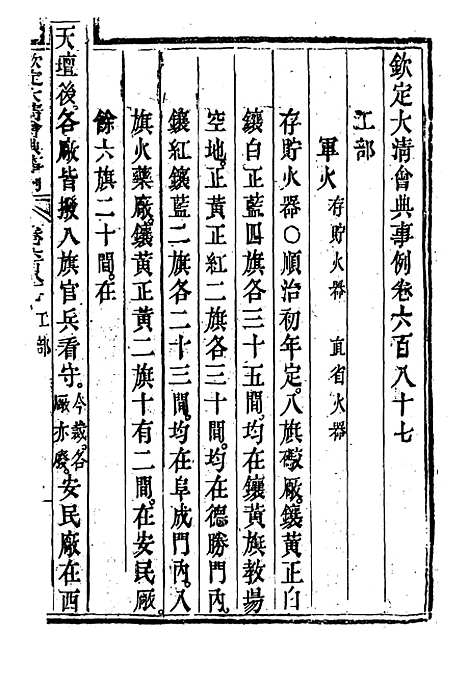 欽定大清會典事例卷六百八十七
工部
軍火 存貯火器 直省火器
存貯火器〇順治初年定。八旗礮廠。鑲黃正白
鑲白正藍四旗各三十五間。均在鑲黃旗教場
空地。正黃正紅二旗各三十間。均在德勝門內。
鑲紅鑲藍二旗各二十三間。均在阜成門內。八
旗火藥廠。鑲黃正黃二旗十有二間。在安民厰。
餘六旗二十間。在
天壇後。各廠皆撥八旗官兵看守。今裁。各厰亦廢。安民厰在西
欽定大清會典事例 卷六百八十七 工部 一